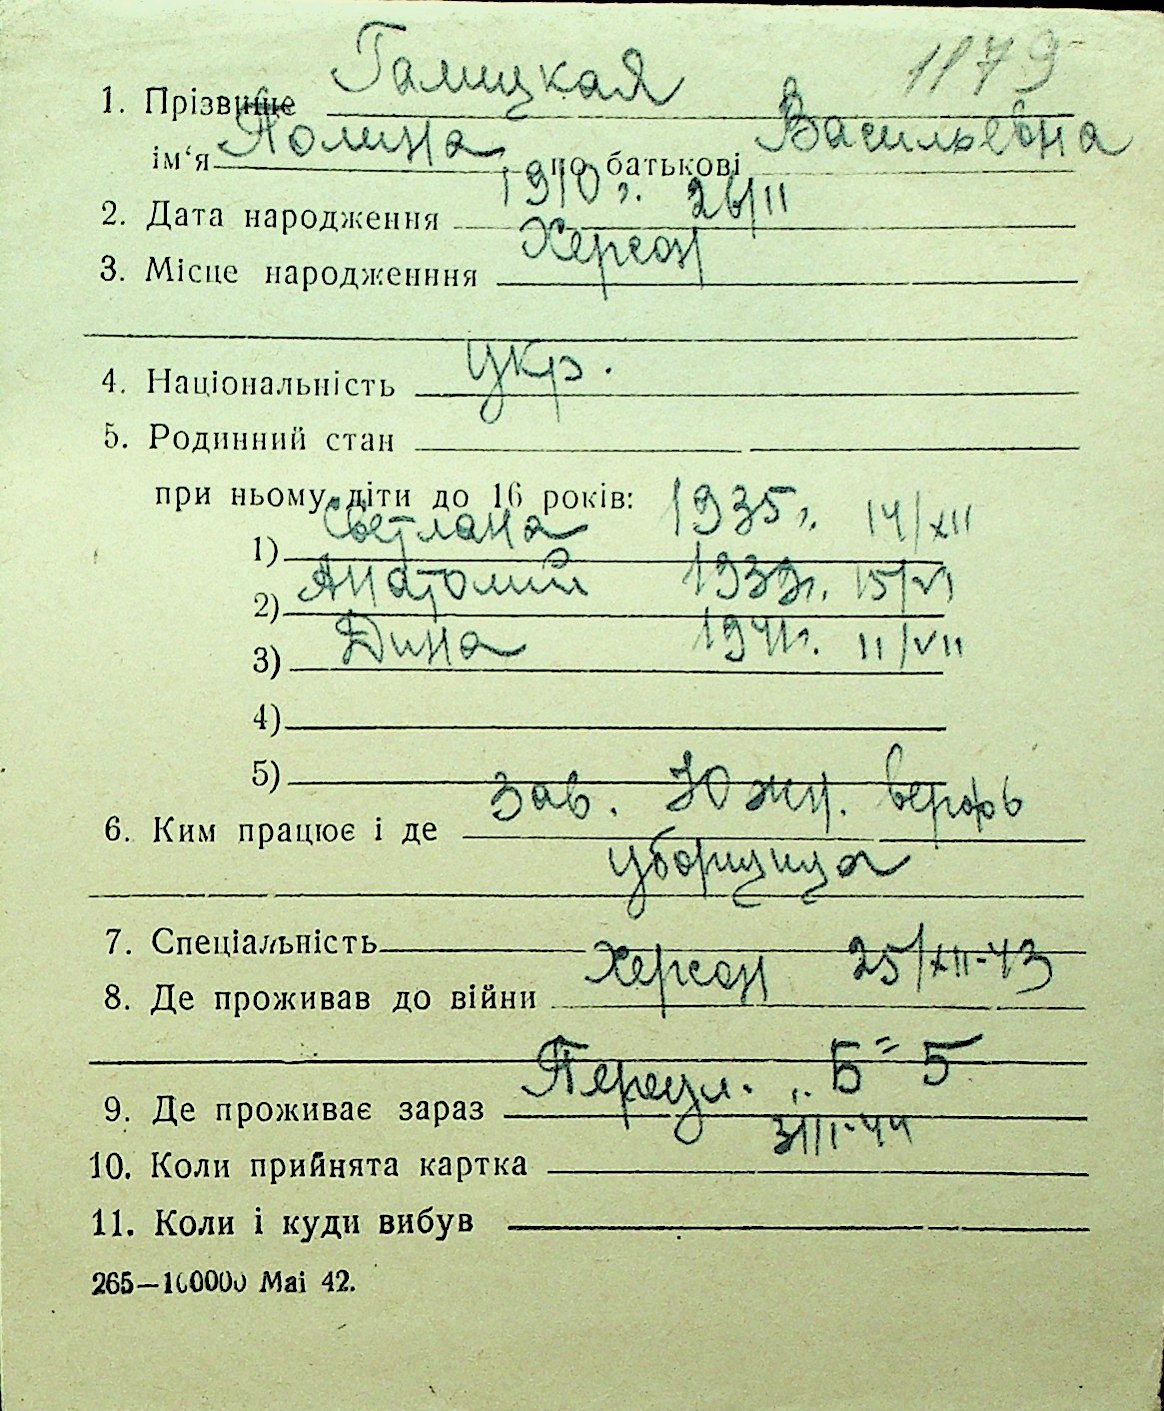 1179
1. Прізвище Галицкая
ім‘я Полина по батькові Васильевна
2. Дата народження 1910 г. 26/II
3. Місце народженння Херсон
4. Національність укр.
5. Родинний стан
при ньому діти до 16 років:
1) Светлана 1935 г. 14/XII
2) Анатолий 1939 г. 15/VI
3) Дина 1941 г. 11/VII
4)
5)
6. Ким працює і де зав. Южн. верфь
уборщица
7. Спеціальність
8. Де проживав до війни Херсон 25/XII-43
9. Де проживає зараз Б - 5
10. Коли прийнята картка
11. Коли і куди вибув
265—100000 Mai 42.